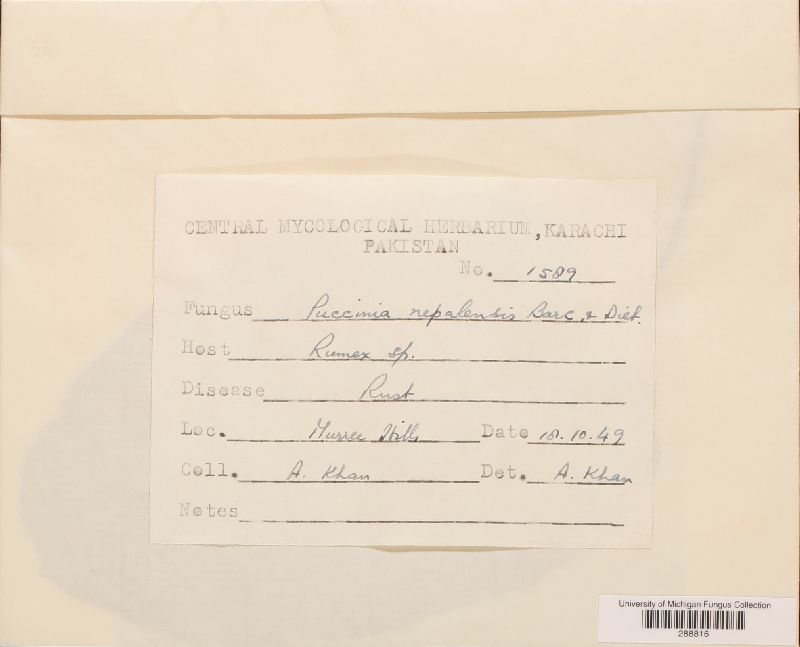 CENTRAL MYCOLOGICAL HERBARIUM, KARACHI
PAKISTAN
No. 1589
Fungus Puccinia nepalensis Barc. & Diet.
Host Rumex sp.
Disease Rust
Loc. Murree Hills Date 18.10.49
Coll. A. Khan Det. A. Khan
Notes
University of Michigan Fungus Collection
288816